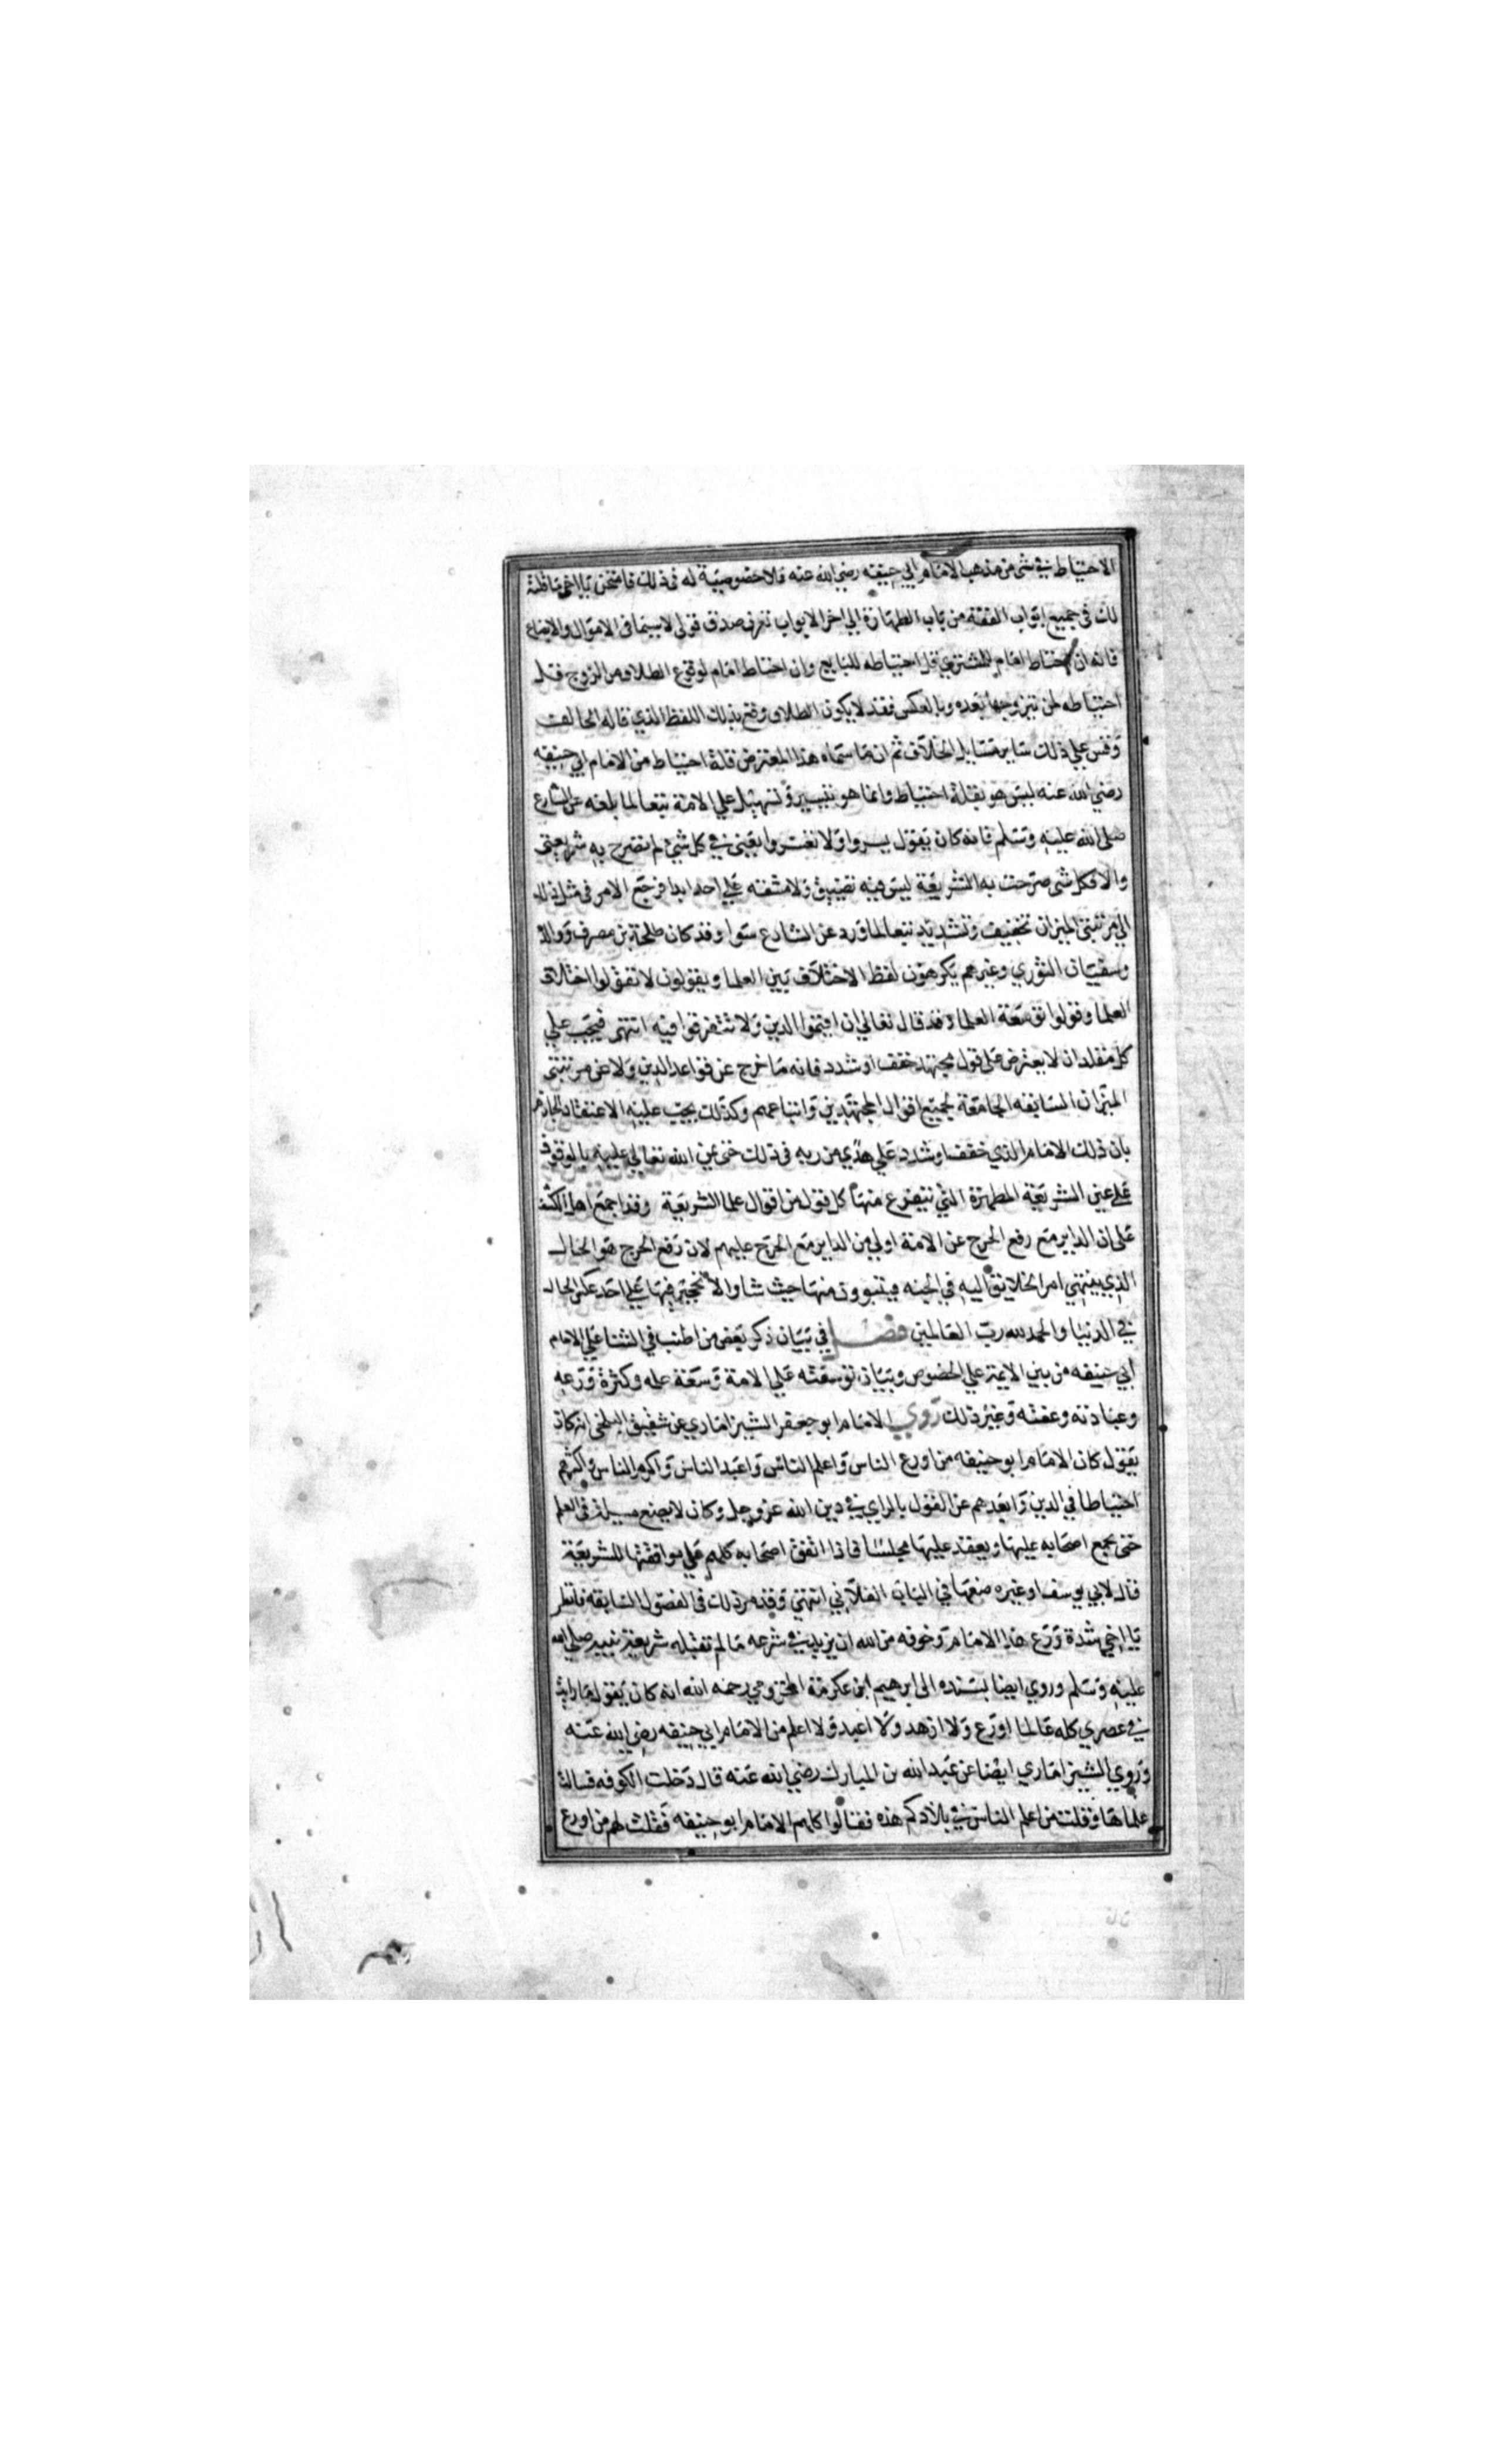 الاحتياط في شي من مذهب الامام ابي حنيفه رضي الله عنه فلا خصوصية له في ذلك فامتحن يا اخي ما قلته
لك في جميع ابواب الفقه من باب الطهارة الي اخر الابواب تعرف صدق قولي لا سيما في الاموال والابضاع
فانه ان احتاط امام للمشتري قل احتياطه للبايع وان احتاط امام لوقوع الطلاق من الزوج قل
احتياطه لمن تتزوجها بعده وبالعكس فقد لا يكون الطلاق وقع بذلك اللفظ الذي قاله الحالف
وقس علي ذلك ساير مسايل الخلاف ثم ان ما سماه هذا المعترض قلة احتياط من الامام ابي حنيفه
رضي الله عنه ليس هو بقلة احتياط وانما هو تيسير وتسهيل علي الامة تبعا لما بلغه عن الشارع
صلي الله عليه وسلم فانه كان يقول يسروا ولا تعسروا يعني في كل شي لم تصرح به شريعتي
والا فكل شي صرحت به الشريعة ليس فيه تضييق ولا مشقه علي احد ابدا فرجع الامر في مثل ذلك
الي مرتبتي الميزان تخفيف وتشديد تبعا لما ورد عن الشارع سوا وقد كان طلحة بن مصرف ووالده
وسفيان الثوري وغيرهم يكرهون لفظ الاختلاف بين العلما ويقولون لا تقولوا اختلاف
العلما وقولوا توسعة العلما وقد قال تعالي ان اقيموا الدين ولا تتفرقوا فيه انتهى فيجب علي
كل مقلد ان لا يعترض على قول مجتهد خفف او شدد فانه ما خرج عن قواعد الدين ولا عن مرتبتي
الميزان السابقه الجامعة لجميع اقوال المجتهدين واتباعهم وكذلك يجب عليه الاعتقاد الجازم
بان ذلك الامام الذي خفف او شدد علي هدي من ربه في ذلك حتى يمن الله تعالي عليه بالوقوف
على عين الشريعة المطهرة التي يتفرع منها كل قول من اقوال علما الشريعة وقد اجمع اهل الكشف
على ان الداير مع رفع الحرج عن الامة اولي من الداير مع الحرج عليهم لان رفع الحرج هو الحال
الذي ينتهي امر الخلايق اليه في الجنه فيتبوون منها حيث شاوا لا تحجير فيها علي احد عكس الحال
في الدنيا والحمد لله رب العالمين فصل في بيان ذكر بعض من اطنب في الثنا علي الامام
ابي حنيفه من بين الايمة علي الخصوص وبيان توسعته علي الامة وسعة علمه وكثرة ورعه
وعبادته وعفته وغير ذلك روي الامام ابو جعفر الشيزاماري عن شقيق البلخي انه كان
يقول كان الامام ابو حنيفه من اورع الناس واعلم الناس واعبد الناس واكرم الناس واكثرهم
احتياطا في الدين وابعدهم عن القول بالراي في دين الله عز وجل وكان لا يضع مسيلة في العلم
حتى يجمع اصحابه عليها ويعقد عليها مجلسا فاذا اتفق اصحابه كلهم علي موافقتها للشريعة
قال لابي يوسف او غيره ضعها في الباب الفلاني انتهي وقد مر ذلك في الفصول السابقه فانظر
يا اخي شدة ورع هذا الامام وخوفه من الله ان يزيد في شرعه ما لم تقبله شريعة نبيه صلي الله
عليه وسلم وروي ايضا بسنده الى ابرهيم ابن عكرمة المخزومي رحمه الله انه كان يقول ما رايت
في عصري كله عالما اورع ولا ازهد ولا اعبد ولا اعلم من الامام ابي حنيفه رضي الله عنه
وروي الشيزاماري ايضا عن عبد الله بن المبارك رضي الله عنه قال دخلت الكوفه فسالت
علماها وقلت من اعلم الناس في بلادكم هذه فقالوا كلهم الامام ابو حنيفه فقلت لهم من اورع